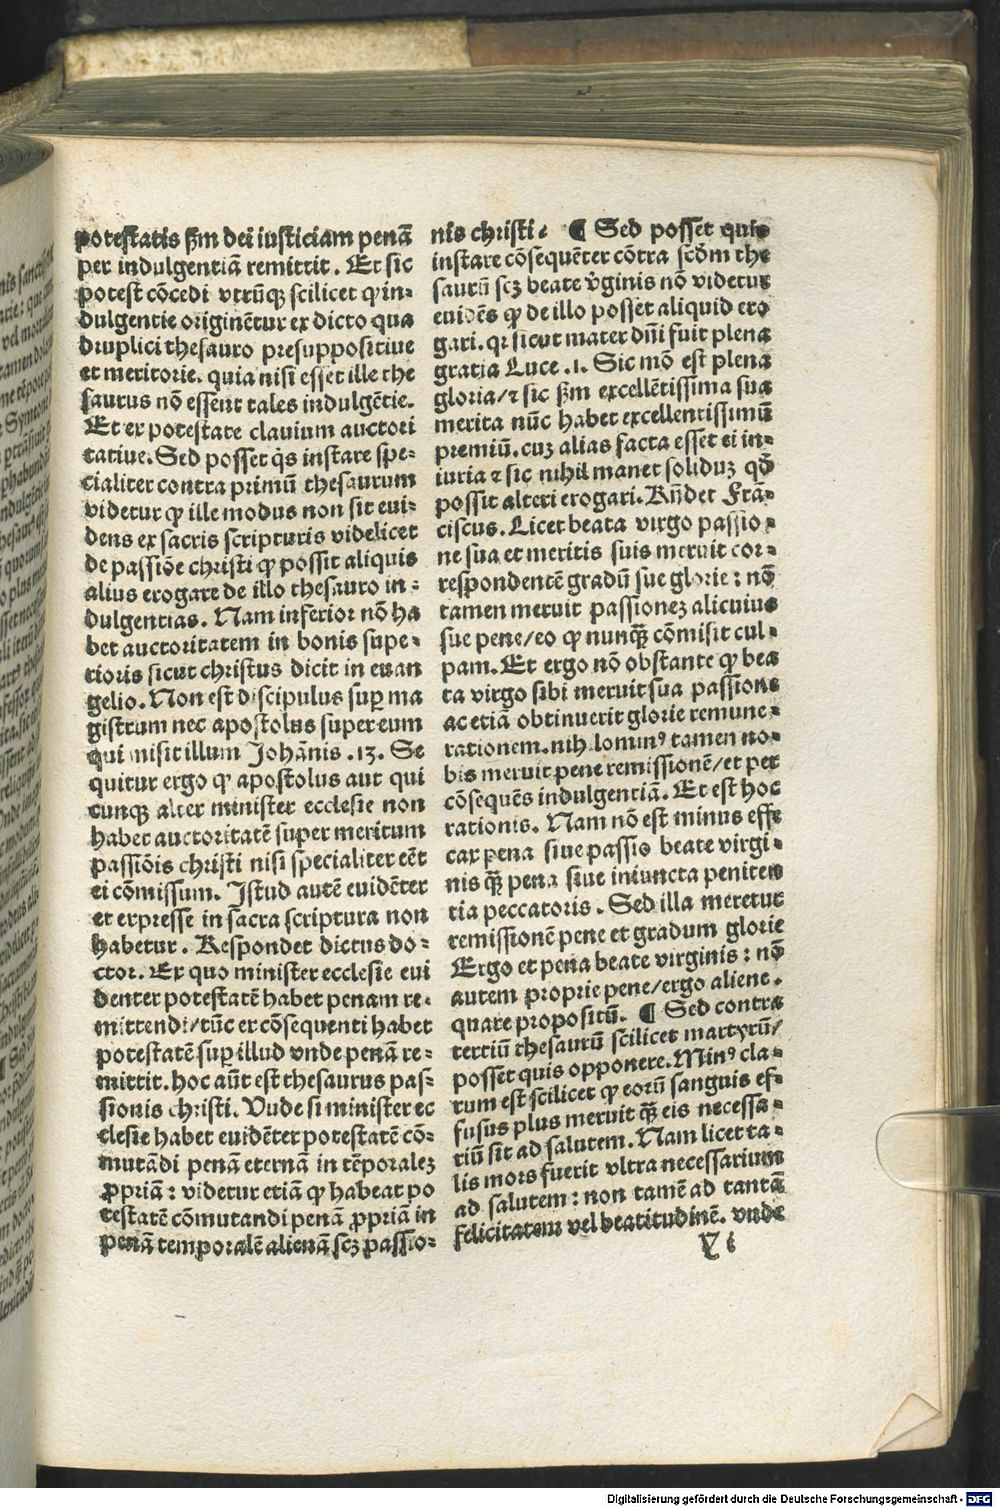 potestatis ẜm dei iusticiam penā
per indulgentiā remittit. Et sic
potest cōcedi vtrūqꝫ scilicet ꝙ in-
dulgentie originētur ex dicto qua
druplici thesauro presuppositiue
et meritorie. quia nisi esset ille the
saurus nō essent tales indulgētie.
Et ex potestate clauium auctori
tatiue. Sed posset q̇s instare spe-
cialiter contra primū thesaurum
videtur ꝙ ille modus non sit eui-
dens ex sacris scripturis videlicet
de passiōe christi ꝙ possit aliquis
alius erogare de illo thesauro in-
dulgentias. Nam inferior nō ha
bet auctoritatem in bonis supe-
rioris sicut christus dicit in euan
gelio. Non est discipulus suꝑ ma
gistrum nec apostolus super eum
qui misit illum Johānis .13. Se
quitur ergo ꝙ apostolus aut qui
cunqꝫ alter minister ecclesie non
habet auctoritatē super meritum
passiōis christi nisi specialiter eēt
ei cōmissum. Istud autē euidēter
et expresse in sacra scriptura non
habetur. Respondet dictus do-
ctor. Ex quo minister ecclesie eui
denter potestatē habet penam re-
mittendi/tūc ex cōsequenti habet
potestatē suꝑ illud vnde penā re-
mittit. hoc aūt est thesaurus pas-
sionis christi. Vnde si minister ec
clesie habet euidēter potestatē cō-
mutādi penā eternā in tēporaleꝫ
ꝓpriā: videtur etiā ꝙ habeat po
testatē cōmutandi penā ꝓpriā in
penā temporalē alienā scꝫ passio-
nis christi. ¶ Sed posset quis
instare cōsequēter cōtra scd̄m the
saurū scꝫ beate v̇ginis nō videtur
euidēs ꝙ de illo posset aliquid ero
gari. qꝛ sicut mater dn̄i fuit plena
gratia Luce .1. Sic mō est plena
gloria/⁊ sic ẜm excellētissima sua
merita nūc habet excellentissimū
premiū. cuꝫ alias facta esset ei in-
iuria ⁊ sic nihil manet soliduꝫ qd̄
possit alteri erogari. Rn̄det Frā-
ciscus. Licet beata virgo passio-
ne sua et meritis suis meruit cor-
respondentē gradū sue glorie: nō
tamen meruit passioneꝫ alicuius
sue pene/eo ꝙ nunqꝫ̄ cōmisit cul-
pam. Et ergo nō obstante ꝙ bea
ta virgo sibi meruit sua passione
ac etiā obtinuerit glorie remune-
rationem. nihilominꝰ tamen no-
bis meruit pene remissionē/et per
cōsequēs indulgentiā. Et est hoc
rationis. Nam nō est minus effi
cax pena siue passio beate virgi-
nis qꝫ̄ pena siue iniuncta peniten
tia peccatoris. Sed illa meretur
remissionē pene et gradum glorie
Ergo et pena beate virginis: nō
autem proprie pene/ergo aliene.
quare propositū. ¶ Sed contra
tertiū thesaurū scilicet martyrū/
posset quis opponere. Minꝰ cla-
rum est scilicet ꝙ eorū sanguis ef-
fusus plus meruit qꝫ̄ eis necessa-
riū sit ad salutem. Nam licet ta-
lis mors fuerit vltra necessarium
ad salutem: non tamē ad tantā
felicitatem vel beatitudinē. vnde
Y i
Digitalisierung gefördert durch die Deutsche Forschungsgemeinschaft - DFG